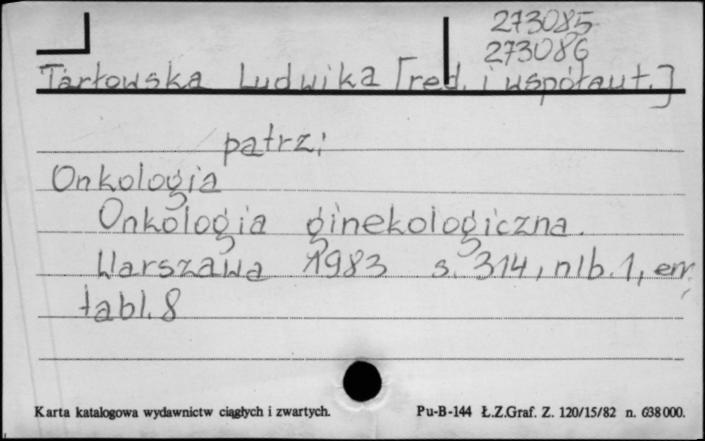 273085
273086
Tarłowska Ludwika [red. i współaut.]
patrz:
Onkologia
Onkologia ginekologiczna.
Warszawa 1983 s. 314, nlb. 1, err,
tabl. 8
Karta katalogowa wydawnictw ciągłych i zwartych. Pu-B-144 Ł.Z.Graf. Z. 120/15/82 n. 638 000.